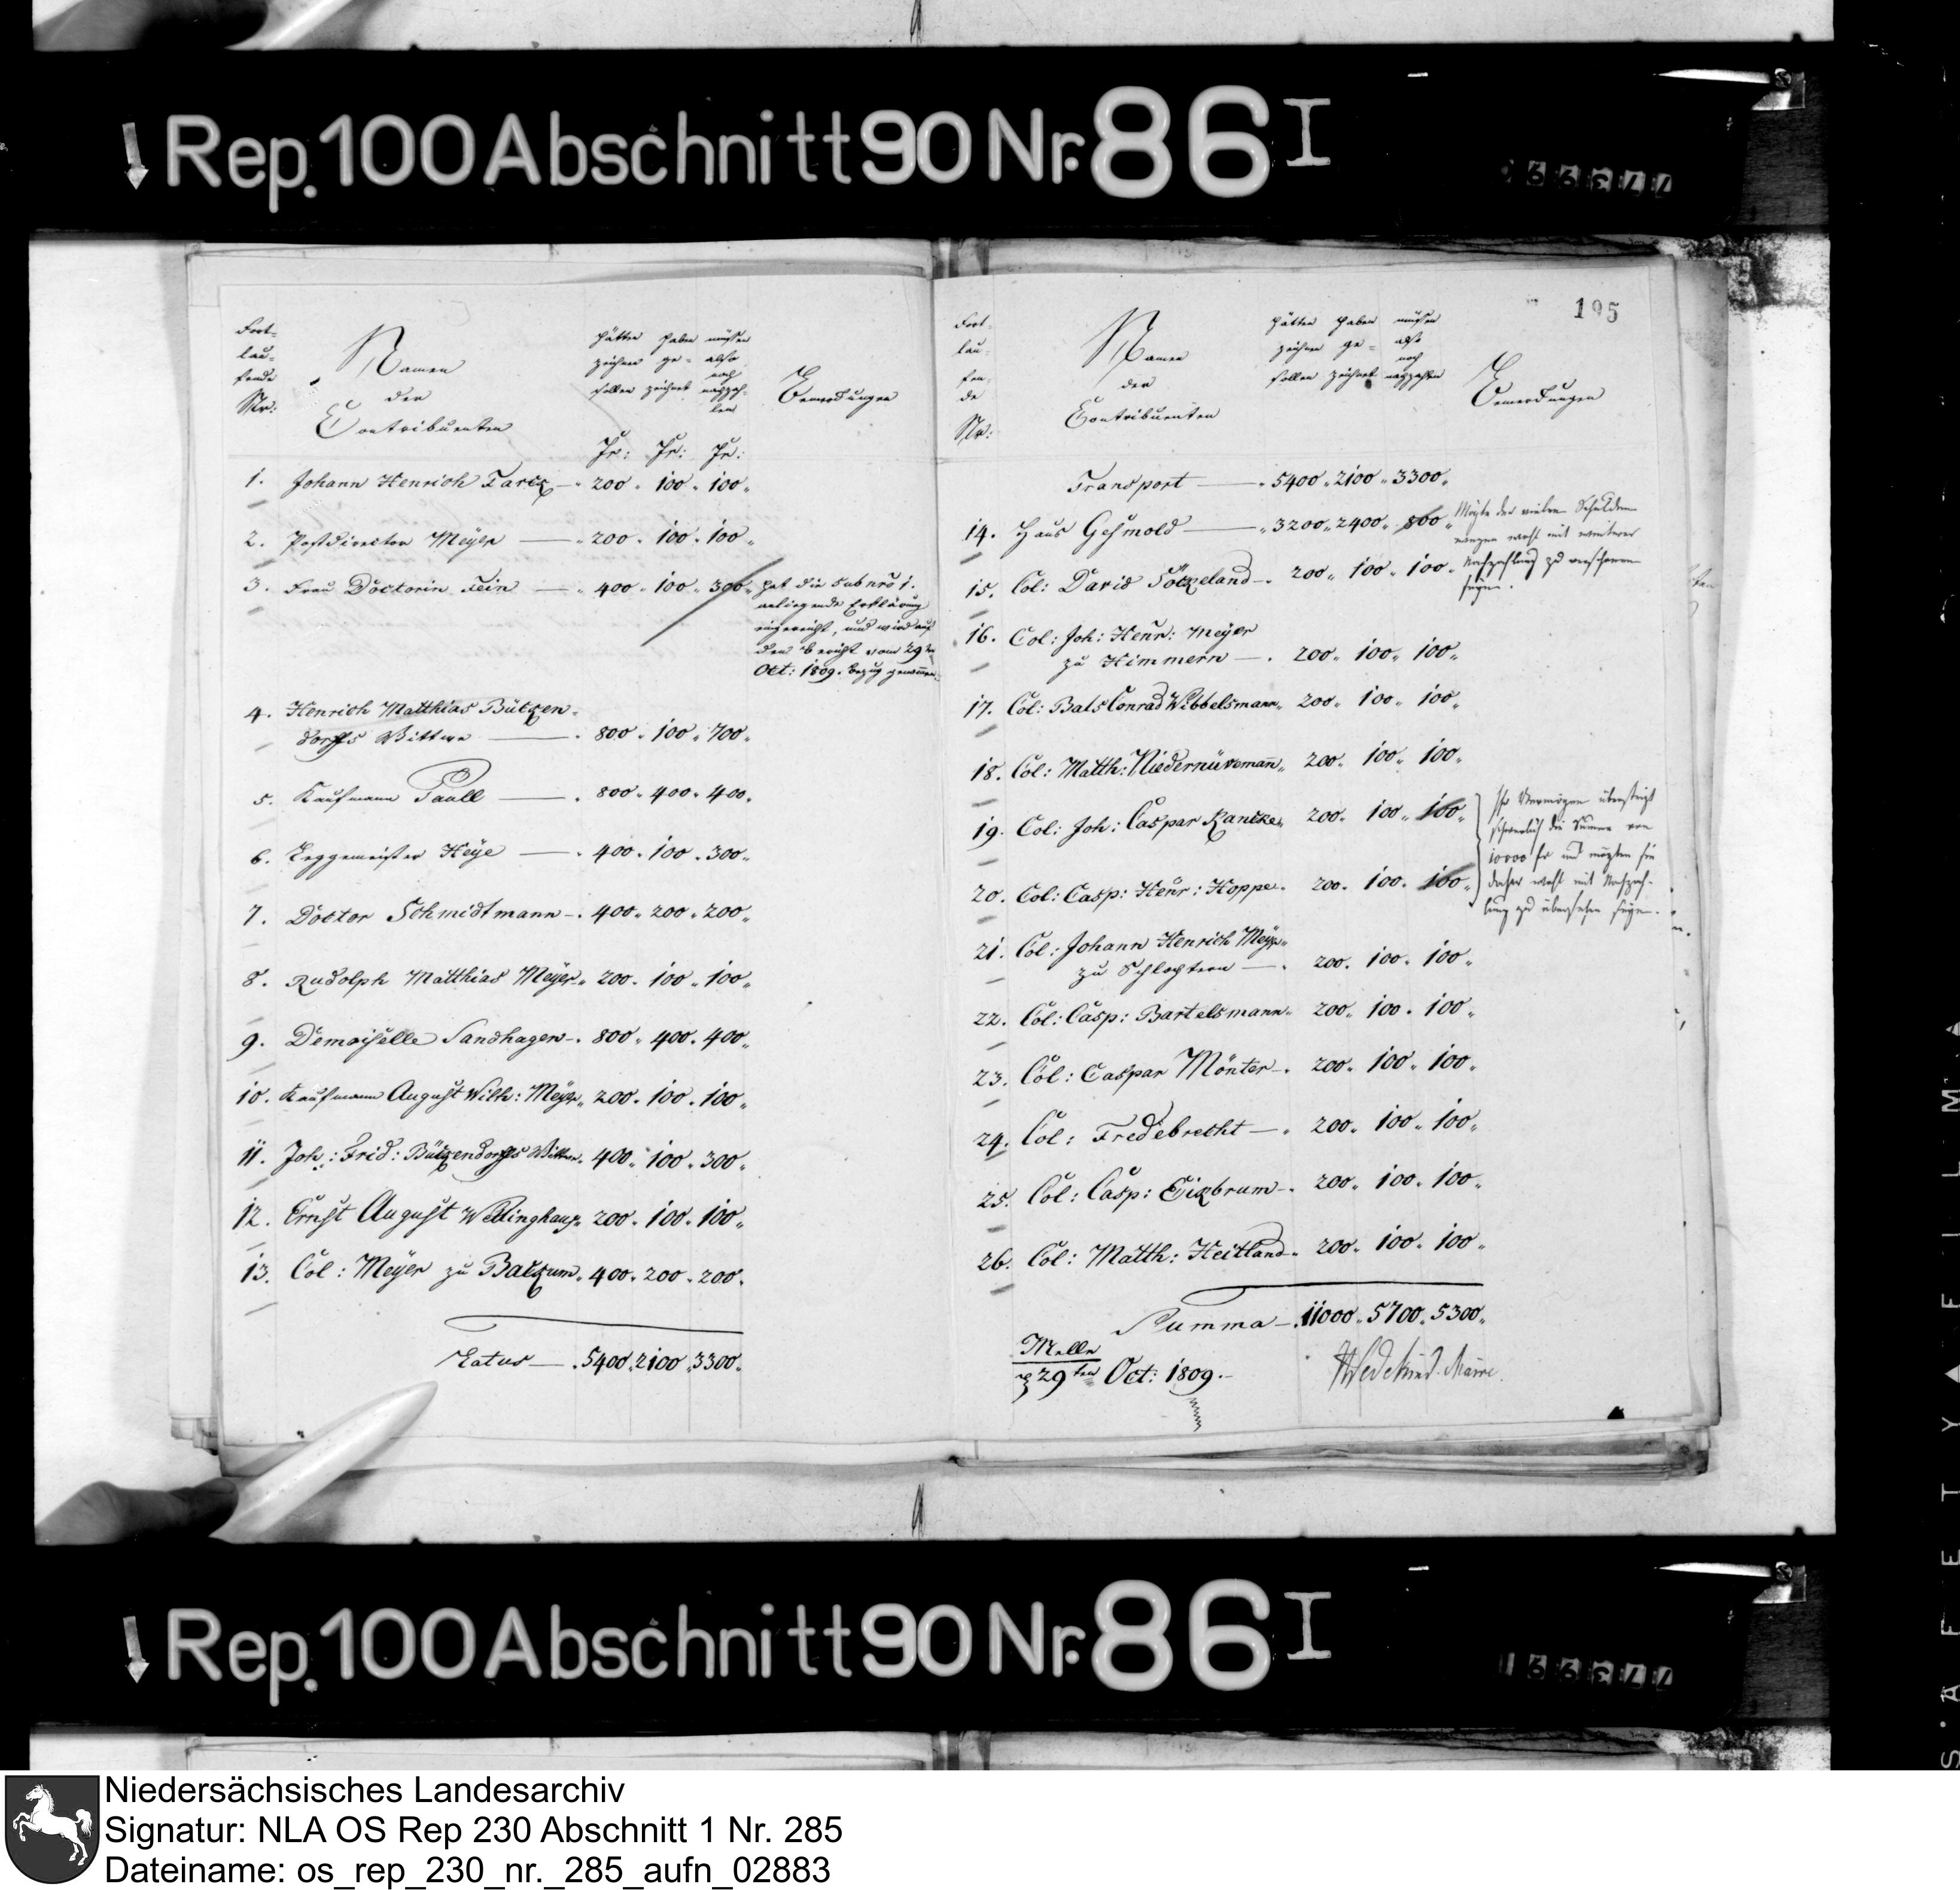 Rep. 100 Abschnitt 90 Nr. 86 I
Fort-
lau-
fende
Nr:
Namen
der
Contribuenten
hätten
zeichnen
sollen
haben
ge-
zeichnet
müssen
also
noch
nachzah-
len
Bemerkungen
Fr: Fr: Fr:
1. Johann Henrich 200. 100. 100.
2. Postdirector Meyer — 200. 100. 100.
3. Frau Doctorin Fein — 400. 100. 300.
hat die sub nro 1.
anliegende Erklärung
eingereicht, und wird auf
den Bericht vom 29ten
Oct: 1809. bezug genommen.
4. Henrich Matthias Bützen-
dorffs Wittwe — 800. 100. 700.
5. Kaufmann Paull — 800. 400. 400.
6. Leggemeister Heye — 400. 100. 300.
7. Doctor Schmidtmann — 400. 200. 200.
8. Rudolph Matthias Meyer. 200. 100. 100.
9. Demoiselle Sandhagen — 800. 400. 400.
10. Kaufmann August Wilh: Meyer. 200. 100. 100.
11. Joh: Frid: Bützendorffs Wittwe. 400. 100. 300.
12. Ernst August Wellinghaus. 200. 100. 100.
13. Col: Meyer zu Bakum. 400. 200. 200.
Latus — 5400. 2100. 3300.
195
Fort-
lau-
fen-
de
Nr:
Namen
der
Contribuenten
hätten
zeichnen
sollen
haben
ge-
zeichnet
müssen
also
noch
nachzahlen
Bemerkungen
Transport — 5400. 2100. 3300.
14. Haus Gesmold — 3200. 2400. 800.
Mögte der vielen Schulden
wegen wohl mit weiterer
Nachzahlung zu verschonen
seyn.
15. Col: David 200. 100. 100.
16. Col: Joh: Henr: Meyer
zu Himmern — 200. 100. 100.
17. Col: Bals Conrad Wibbelsmann. 200. 100. 100.
18. Col: Matth: 200. 100. 100.
19. Col: Joh: Caspar Rancke. 200. 100. 100.
20. Col: Casp: Henr: Hoppe. 200. 100. 100.
Ihr Vermögen übersteigt
schwerlich die Summe von
10000 fr und mögten sie
daher wohl mit Nachzah-
lung zu übersehen seyn.
21. Col: Johann Henrich Meyer
zu Schlochtern — 200. 100. 100.
22. Col: Casp: Bartelsmann. 200. 100. 100.
23. Col: Caspar Mönter — 200. 100. 100.
24. Col: Fredebrecht — 200. 100. 100.
25. Col: Casp: 200. 100. 100.
26. Col: Matth: Heitland. 200. 100. 100.
Summa — 11000. 5700. 5300.
Melle
29ten Oct: 1809.
Wedekind. Maire.
Rep. 100 Abschnitt 90 Nr. 86 I
Niedersächsisches Landesarchiv
Signatur: NLA OS Rep 230 Abschnitt 1 Nr. 285
Dateiname: os_rep_230_nr._285_aufn_02883